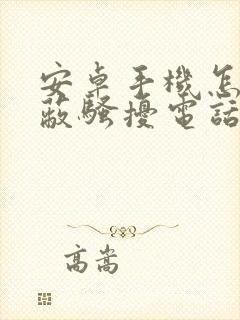 安卓手機怎
蔽騷擾電話
高嵩